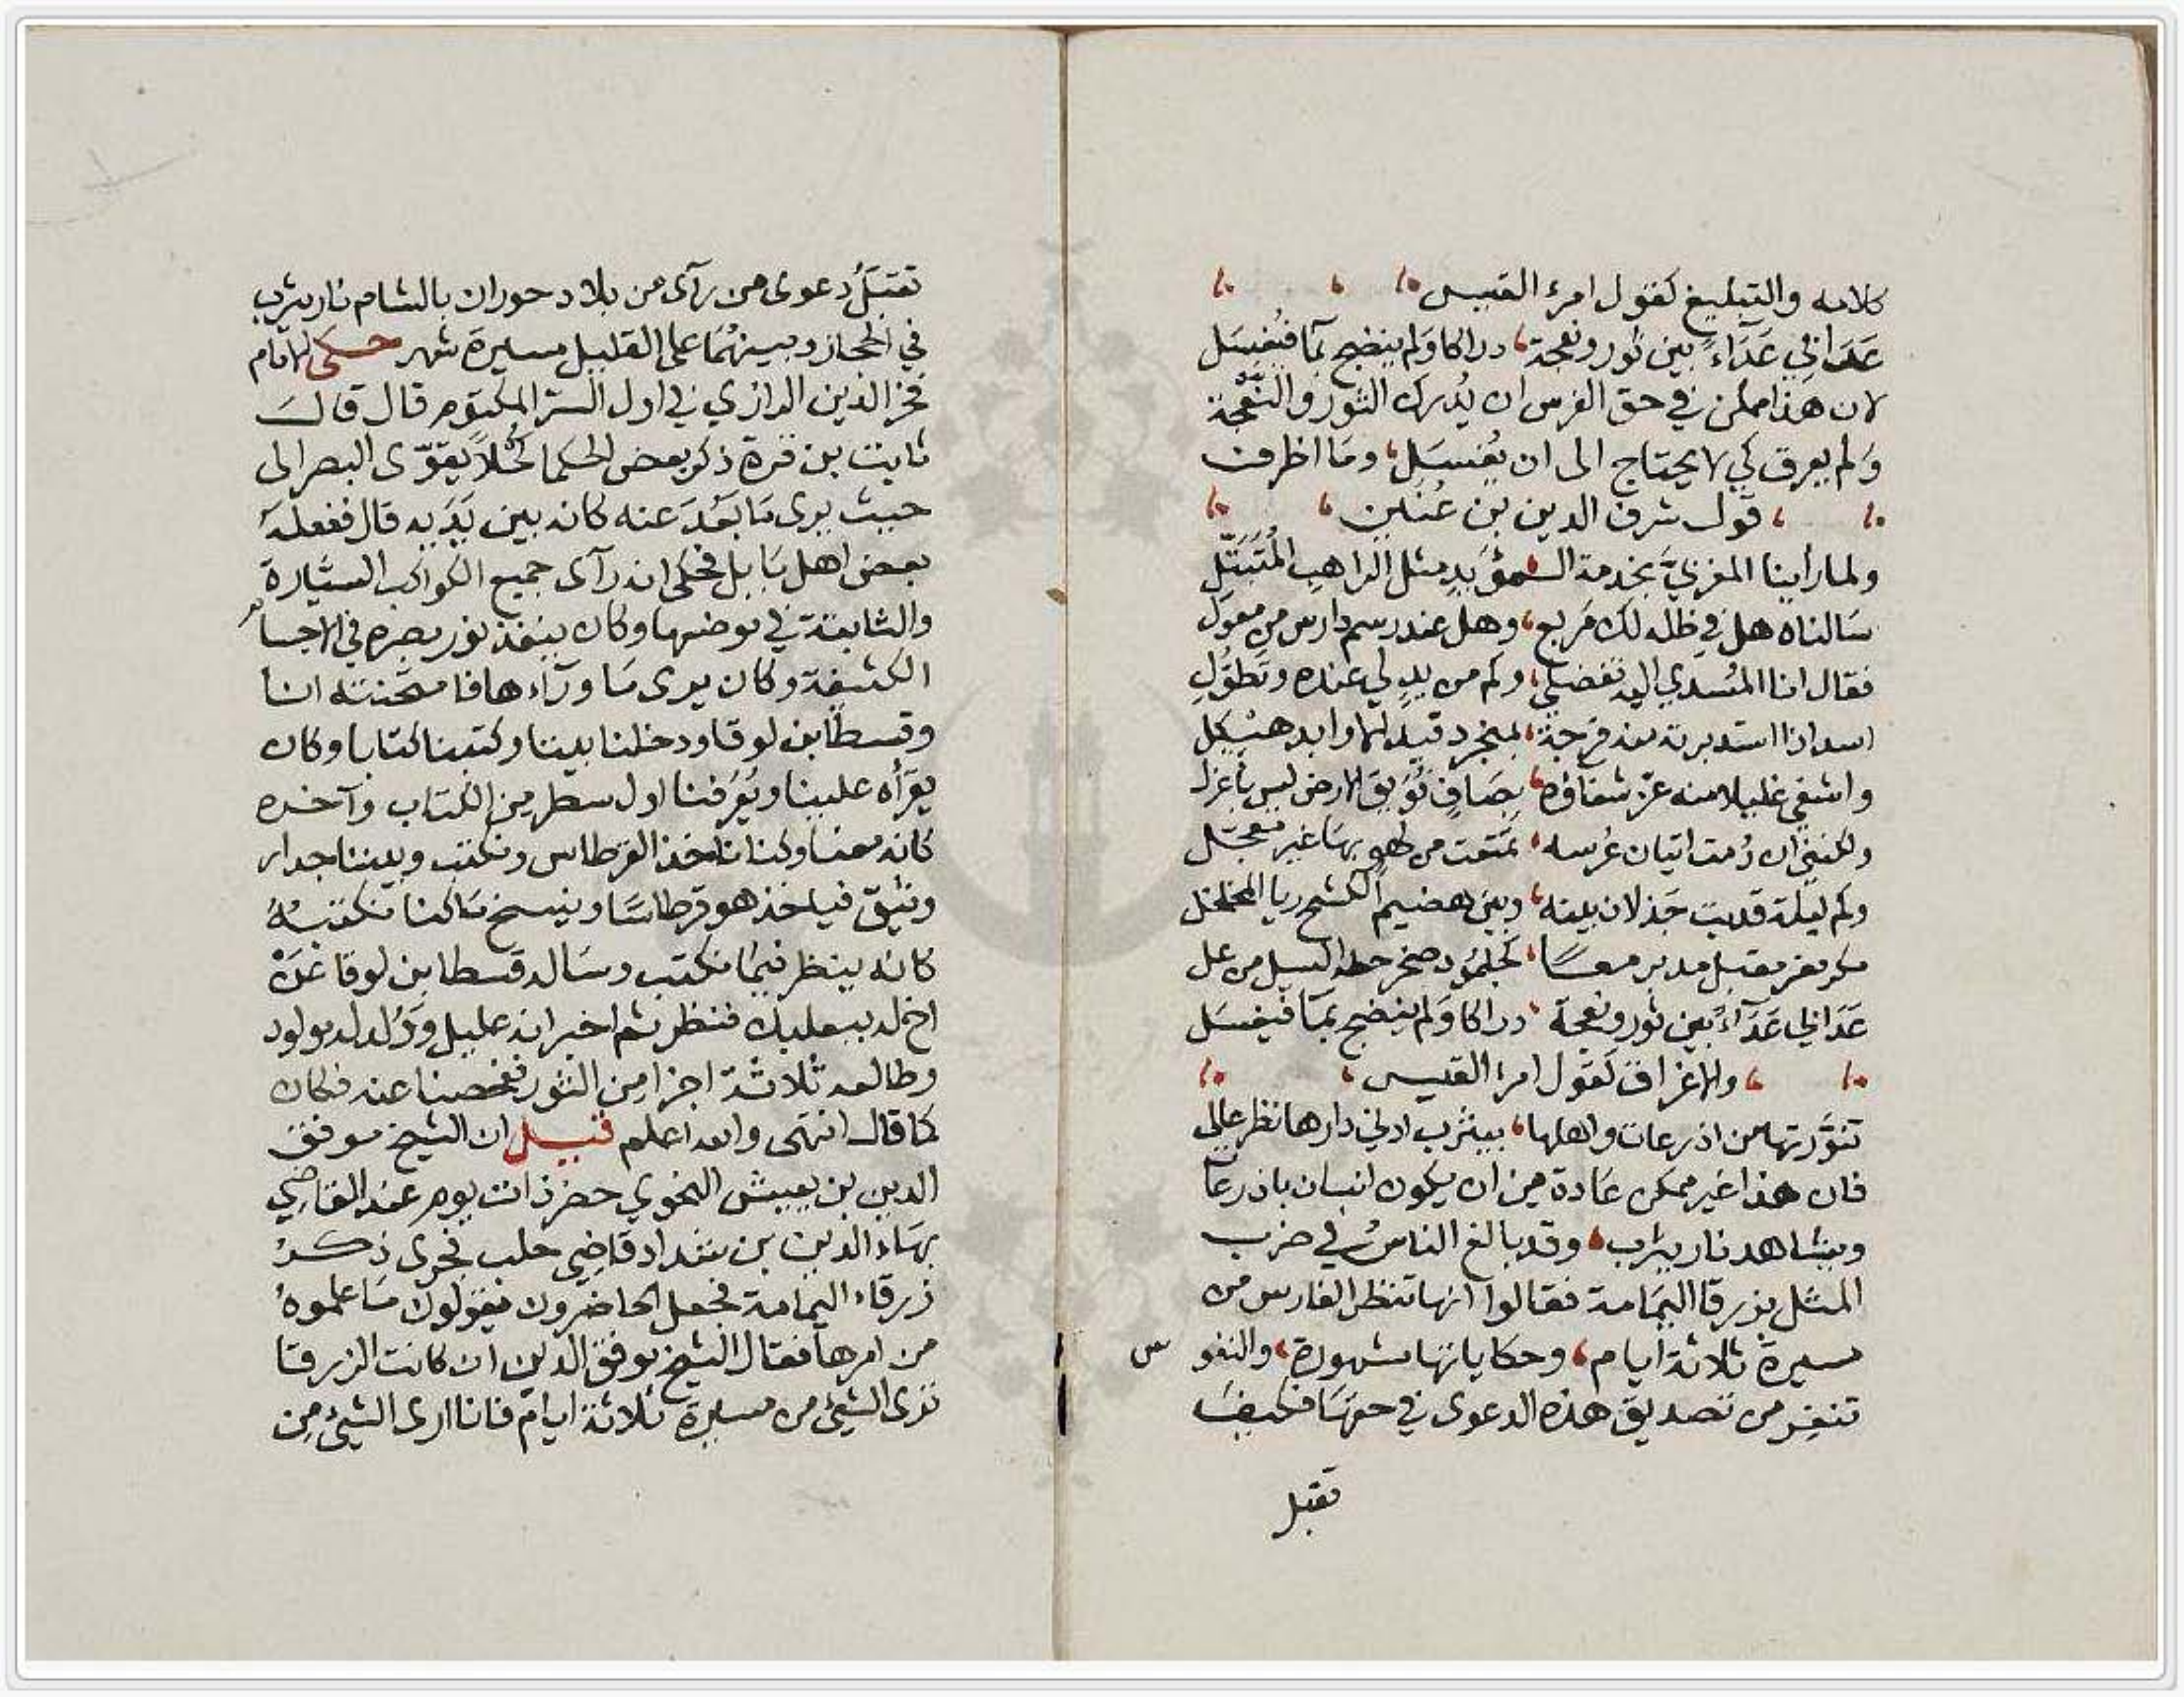 كلامه والتبليغ كقول امرئ القيس
عَدَا في عَدَآءً بين ثور ونعجة، دراكا وَلم ينضح بمآ فيُغسَل
لان هذا ممكن في حق الفرس ان يُدرك الثور والنَّعجة
وَلم يعرق كي لا يحتاج الى ان يُغسَل، ومَا اظرف
، قول شرف الدين بن عُنَين ،
ولما رأينا المغربيَّ بخدمة السمؤيدِ مثل الراهب المُتَبَتّلِ
سَالناه هل في ظله لك مَربع، وهل عند رسم دارس من معول
فقال انا المُسدي اليه تفضلي، وكم من يدٍ لي عنده وتَطوُّلِ
اسد اذا استدبرته منه فرجة، بمنجرد قيد الاوابد هيكل
واشفي غليلا منه عزّ شفاؤه، بِضَافٍ فُوَيقَ الارض ليس باعزل
ولكنني ان رُمت اتيان عُرسه، تمتعت من لهوٍ بهَا غير معجَل
وكم ليلة قد بت جَذلان بينه، وبين هضيم الكشح ريا المخلخل
مكر مفر مقبل مدبر معًا، كجلمُود صخر حطه السيل من عل
عَدَا في عَدَآءً بين ثور ونعجة، دراكا وَلم ينضح بمَآ فيغسَل
، والاغراق كقول امرئ القيس ،
تنوَّرتها من اذرعات واهلها، بيثرب ادني دارها نظر عالي
فان هذا غير ممكن عَادة من ان يكون انسان باذرعَات
ويشاهد نار يثرب، وقد بالغ الناسُ في ضرب
المثل بزرقا اليمَامة فقالوا انها تنظر الفارس من
مسيرة ثلاثة ايام، وحكاياتها مشهورة، والنفوس
تنفر من تصديق هذه الدعوى في حقهَا فكيفَ
تقبل
تقبَلُ دعوى من رآى من بلاد حوران بالشام نار يثرب
في الحجاز وبينهُمَا على القليل مسيرة شهر حكى الامَام
فخر الدين الرازي في اول السّرّ المكتوم قال قالَ
ثابت بن قرة ذكر بعض الحكما كُحلاً يقوّى البصر الى
حيث يرى مَا بَعُدَ عنه كانه بين يَدَيه قال ففعلهُ
بعض اهل بَابل فحكى انه رآى جميع الكواكب السيَّارة
والثابتة في موضعها وكان ينفذ نور بصره في الاجسام
الكثيفة وكان يرى مَا ورَآءها فامتحَنته انا
وقسطا بن لوقا ودخلنا بيتا وكتبنا كتابا وكان
يقرَأه علينا ويُعَرفنا اول سطر من الكتاب وآخره
كانه معنا وكنا ناخذ القرطاس ونكتب وبيننا جدار
وثيق فياخذ هو قرطاسًا وينسخ مَا كنا نكتبهُ
كانه ينظر فيمَا نكتب وسَاله قسطا بن لوقا عَن
اخ له ببعلبك فنظر ثم اخبر انه عليل وَوُلد له مولود
وطالعه ثلاثة اجزا من الثور ففحصنا عنه فكان
كما قال انتهَى والله اعلم قيل ان الشيخ موفق
الدين بن يعيش النحوي حضر ذات يوم عند القاضِي
بهَاء الدين بن شداد قاضِي حلب فجرى ذكرُ
زرقاء اليمَامة فجعل الحاضرون يقولون مَا علموهُ
من امرها فقال الشيخ موفق الدين ان كانت الزرقا
ترى الشيئ من مسيرة ثلاثة ايام فانا ارى الشيئ مِن